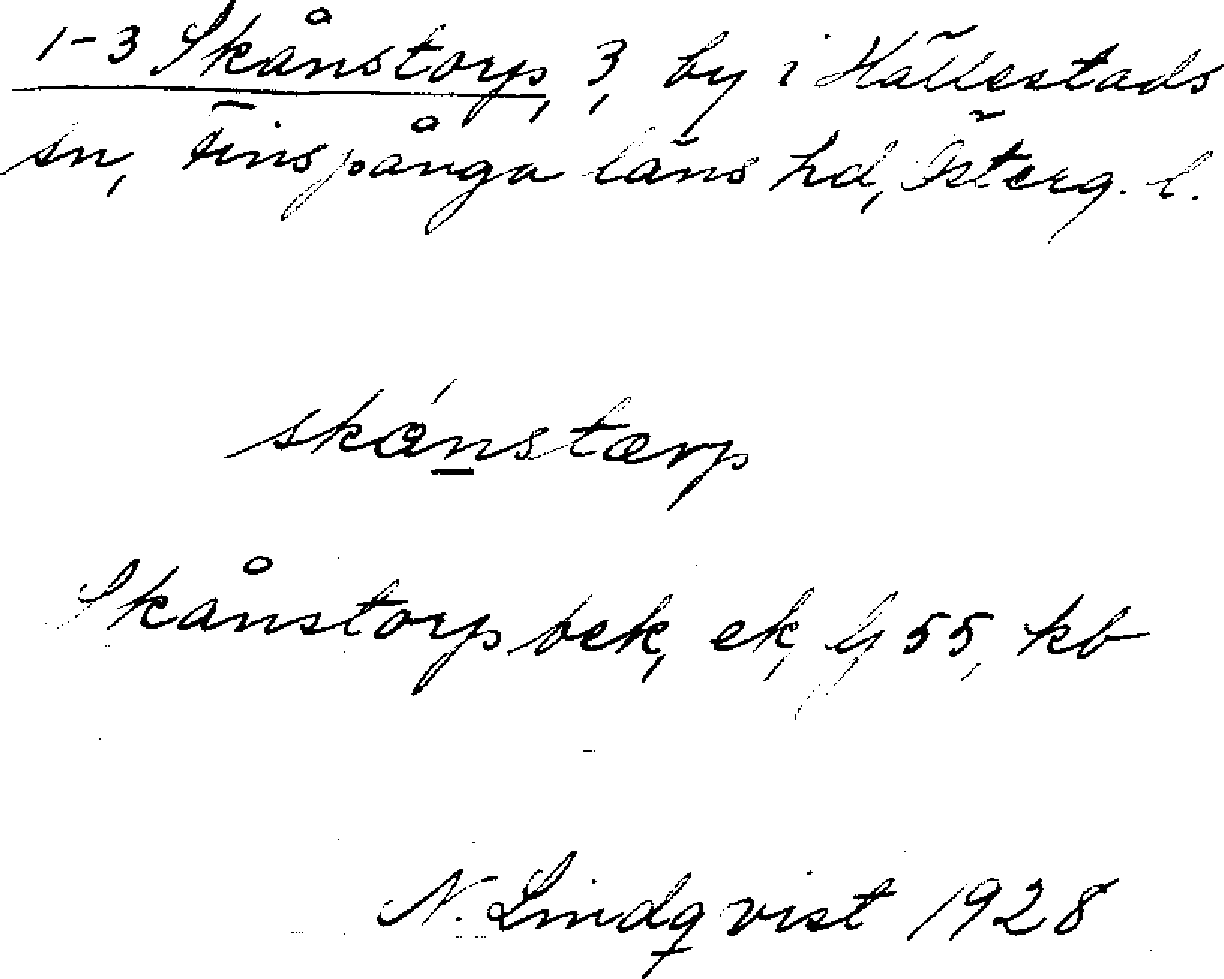 1-3 Skånstorp, 3, by i Hällestads
sn, Finspånga läns hd, Österg. l.
skånstorp
Skånstorp bek, ek, Gj 55, kb
N. Lindqvist 1928